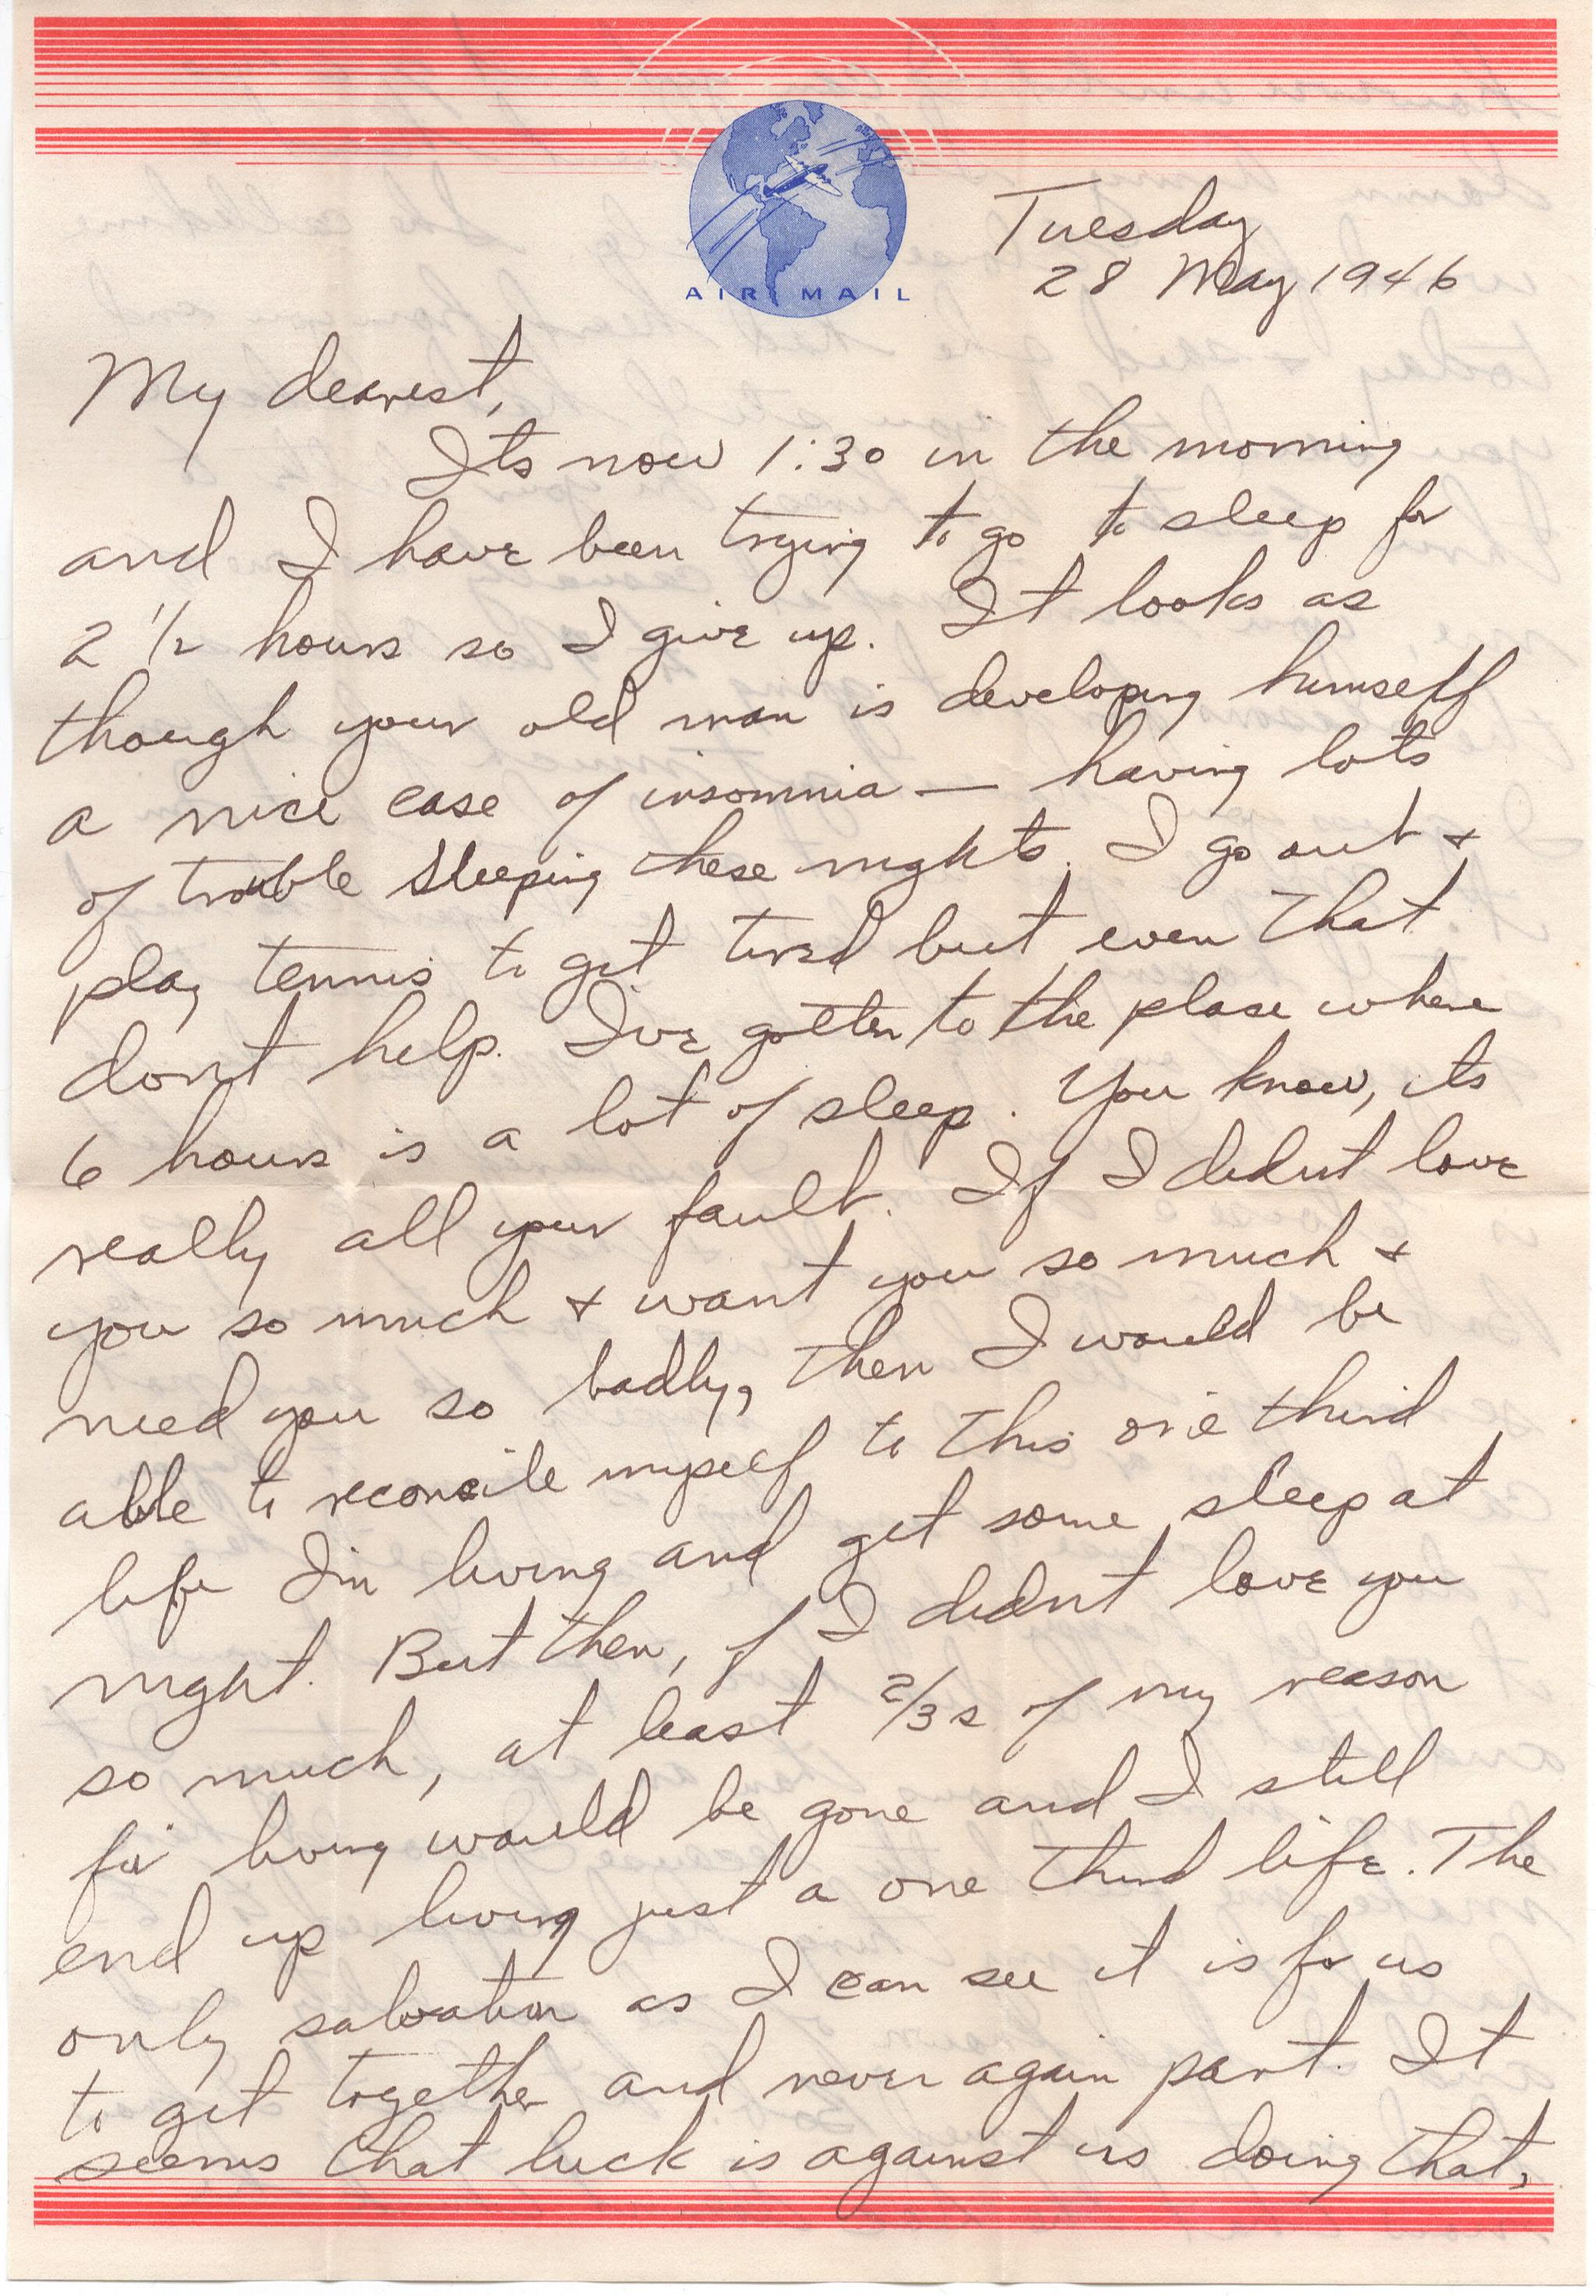 AIR MAIL
Tuesday
28 May 1946
My dearest,
Its now 1:30 in the morning
and I have been trying to go to sleep for
2 1/2 hours so I give up. It looks as
though your old man is developing himself
a nice case of insomnia — having lots
of trouble sleeping these nights. I go out +
play tennis to get tired but even that
dont help. I've gotten to the place where
6 hours is a lot of sleep. You know, its
really all your fault. If I didn't love
you so much + want you so much +
need you so badly, then I would be
able to reconcile myself to this one third
life I'm living and get some sleep at
night. But then, if I didn't love you
so much, at least 2/3s of my reason
for living would be gone and I still
end up living just a one third life. The
only salvation as I can see it is for us
to get together and never again part. It
seems that luck is against us doing that,